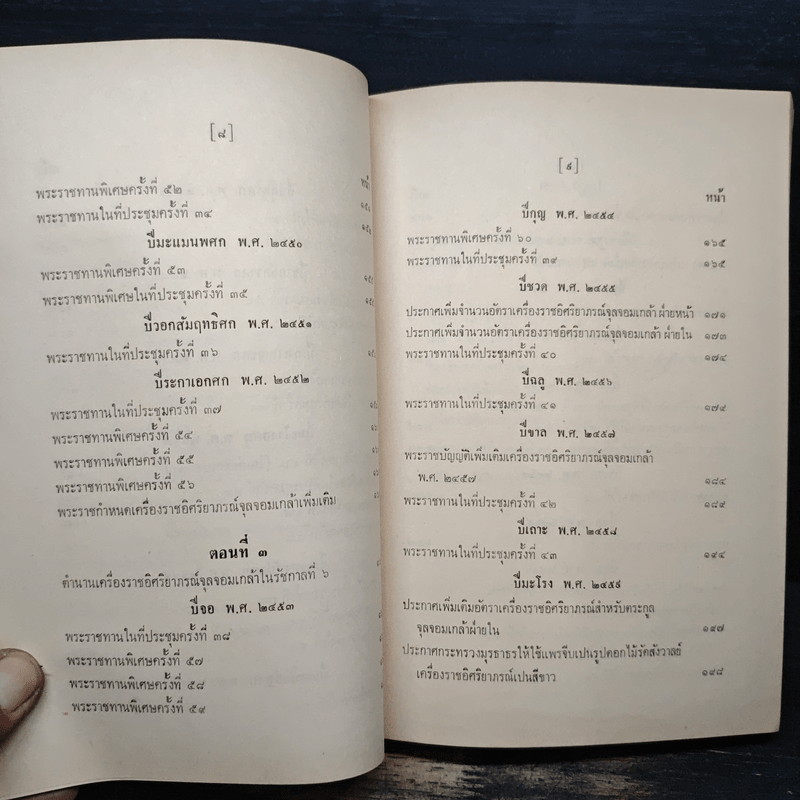 [๘]
หน้า
พระราชทานพิเศษครั้งที่ ๕๒
พระราชทานในที่ประชุมครั้งที่ ๓๔
ปีมะแมนพศก พ.ศ. ๒๔๕๐
พระราชทานพิเศษครั้งที่ ๕๓
พระราชทานพิเศษในที่ประชุมครั้งที่ ๓๕
ปีวอกสัมฤทธิศก พ.ศ. ๒๔๕๑
พระราชทานในที่ประชุมครั้งที่ ๓๖
ปีระกาเอกศก พ.ศ. ๒๔๕๒
พระราชทานในที่ประชุมครั้งที่ ๓๗
พระราชทานพิเศษครั้งที่ ๕๔
พระราชทานพิเศษครั้งที่ ๕๕
พระราชทานพิเศษครั้งที่ ๕๖
พระราชกำหนดเครื่องราชอิศริยาภรณ์จุลจอมเกล้าเพิ่มเติม
ตอนที่ ๓
ตำนานเครื่องราชอิศริยาภรณ์จุลจอมเกล้าในรัชกาลที่ ๖
ปีจอ พ.ศ. ๒๔๕๓
พระราชทานในที่ประชุมครั้งที่ ๓๘
พระราชทานพิเศษครั้งที่ ๕๗
พระราชทานพิเศษครั้งที่ ๕๘
พระราชทานพิเศษครั้งที่ ๕๙
[๙]
หน้า
ปีกุญ พ.ศ. ๒๔๕๔
พระราชทานพิเศษครั้งที่ ๖๐ ๑๖๕
พระราชทานในที่ประชุมครั้งที่ ๓๙ ๑๖๕
ปีชวด พ.ศ. ๒๔๕๕
ประกาศเพิ่มจำนวนอัตราเครื่องราชอิศริยาภรณ์จุลจอมเกล้า ฝ่ายหน้า ๑๗๑
ประกาศเพิ่มจำนวนอัตราเครื่องราชอิศริยาภรณ์จุลจอมเกล้า ฝ่ายใน ๑๗๓
พระราชทานในที่ประชุมครั้งที่ ๔๐ ๑๗๔
ปีฉลู พ.ศ. ๒๔๕๖
พระราชทานในที่ประชุมครั้งที่ ๔๑ ๑๗๙
ปีขาล พ.ศ. ๒๔๕๗
พระราชบัญญัติเพิ่มเติมเครื่องราชอิศริยาภรณ์จุลจอมเกล้า
พ.ศ. ๒๔๕๗ ๑๘๔
พระราชทานในที่ประชุมครั้งที่ ๔๒ ๑๘๙
ปีเถาะ พ.ศ. ๒๔๕๘
พระราชทานในที่ประชุมครั้งที่ ๔๓ ๑๙๔
ปีมะโรง พ.ศ. ๒๔๕๙
ประกาศเพิ่มเติมอัตราเครื่องราชอิศริยาภรณ์สำหรับตระกูล
จุลจอมเกล้าฝ่ายใน ๑๙๗
ประกาศกระทรวงมุรธาธรให้ใช้แพรจีบเปนรูปดอกไม้รัดสังวาลย์
เครื่องราชอิศริยาภรณ์เปนสีขาว ๑๙๘